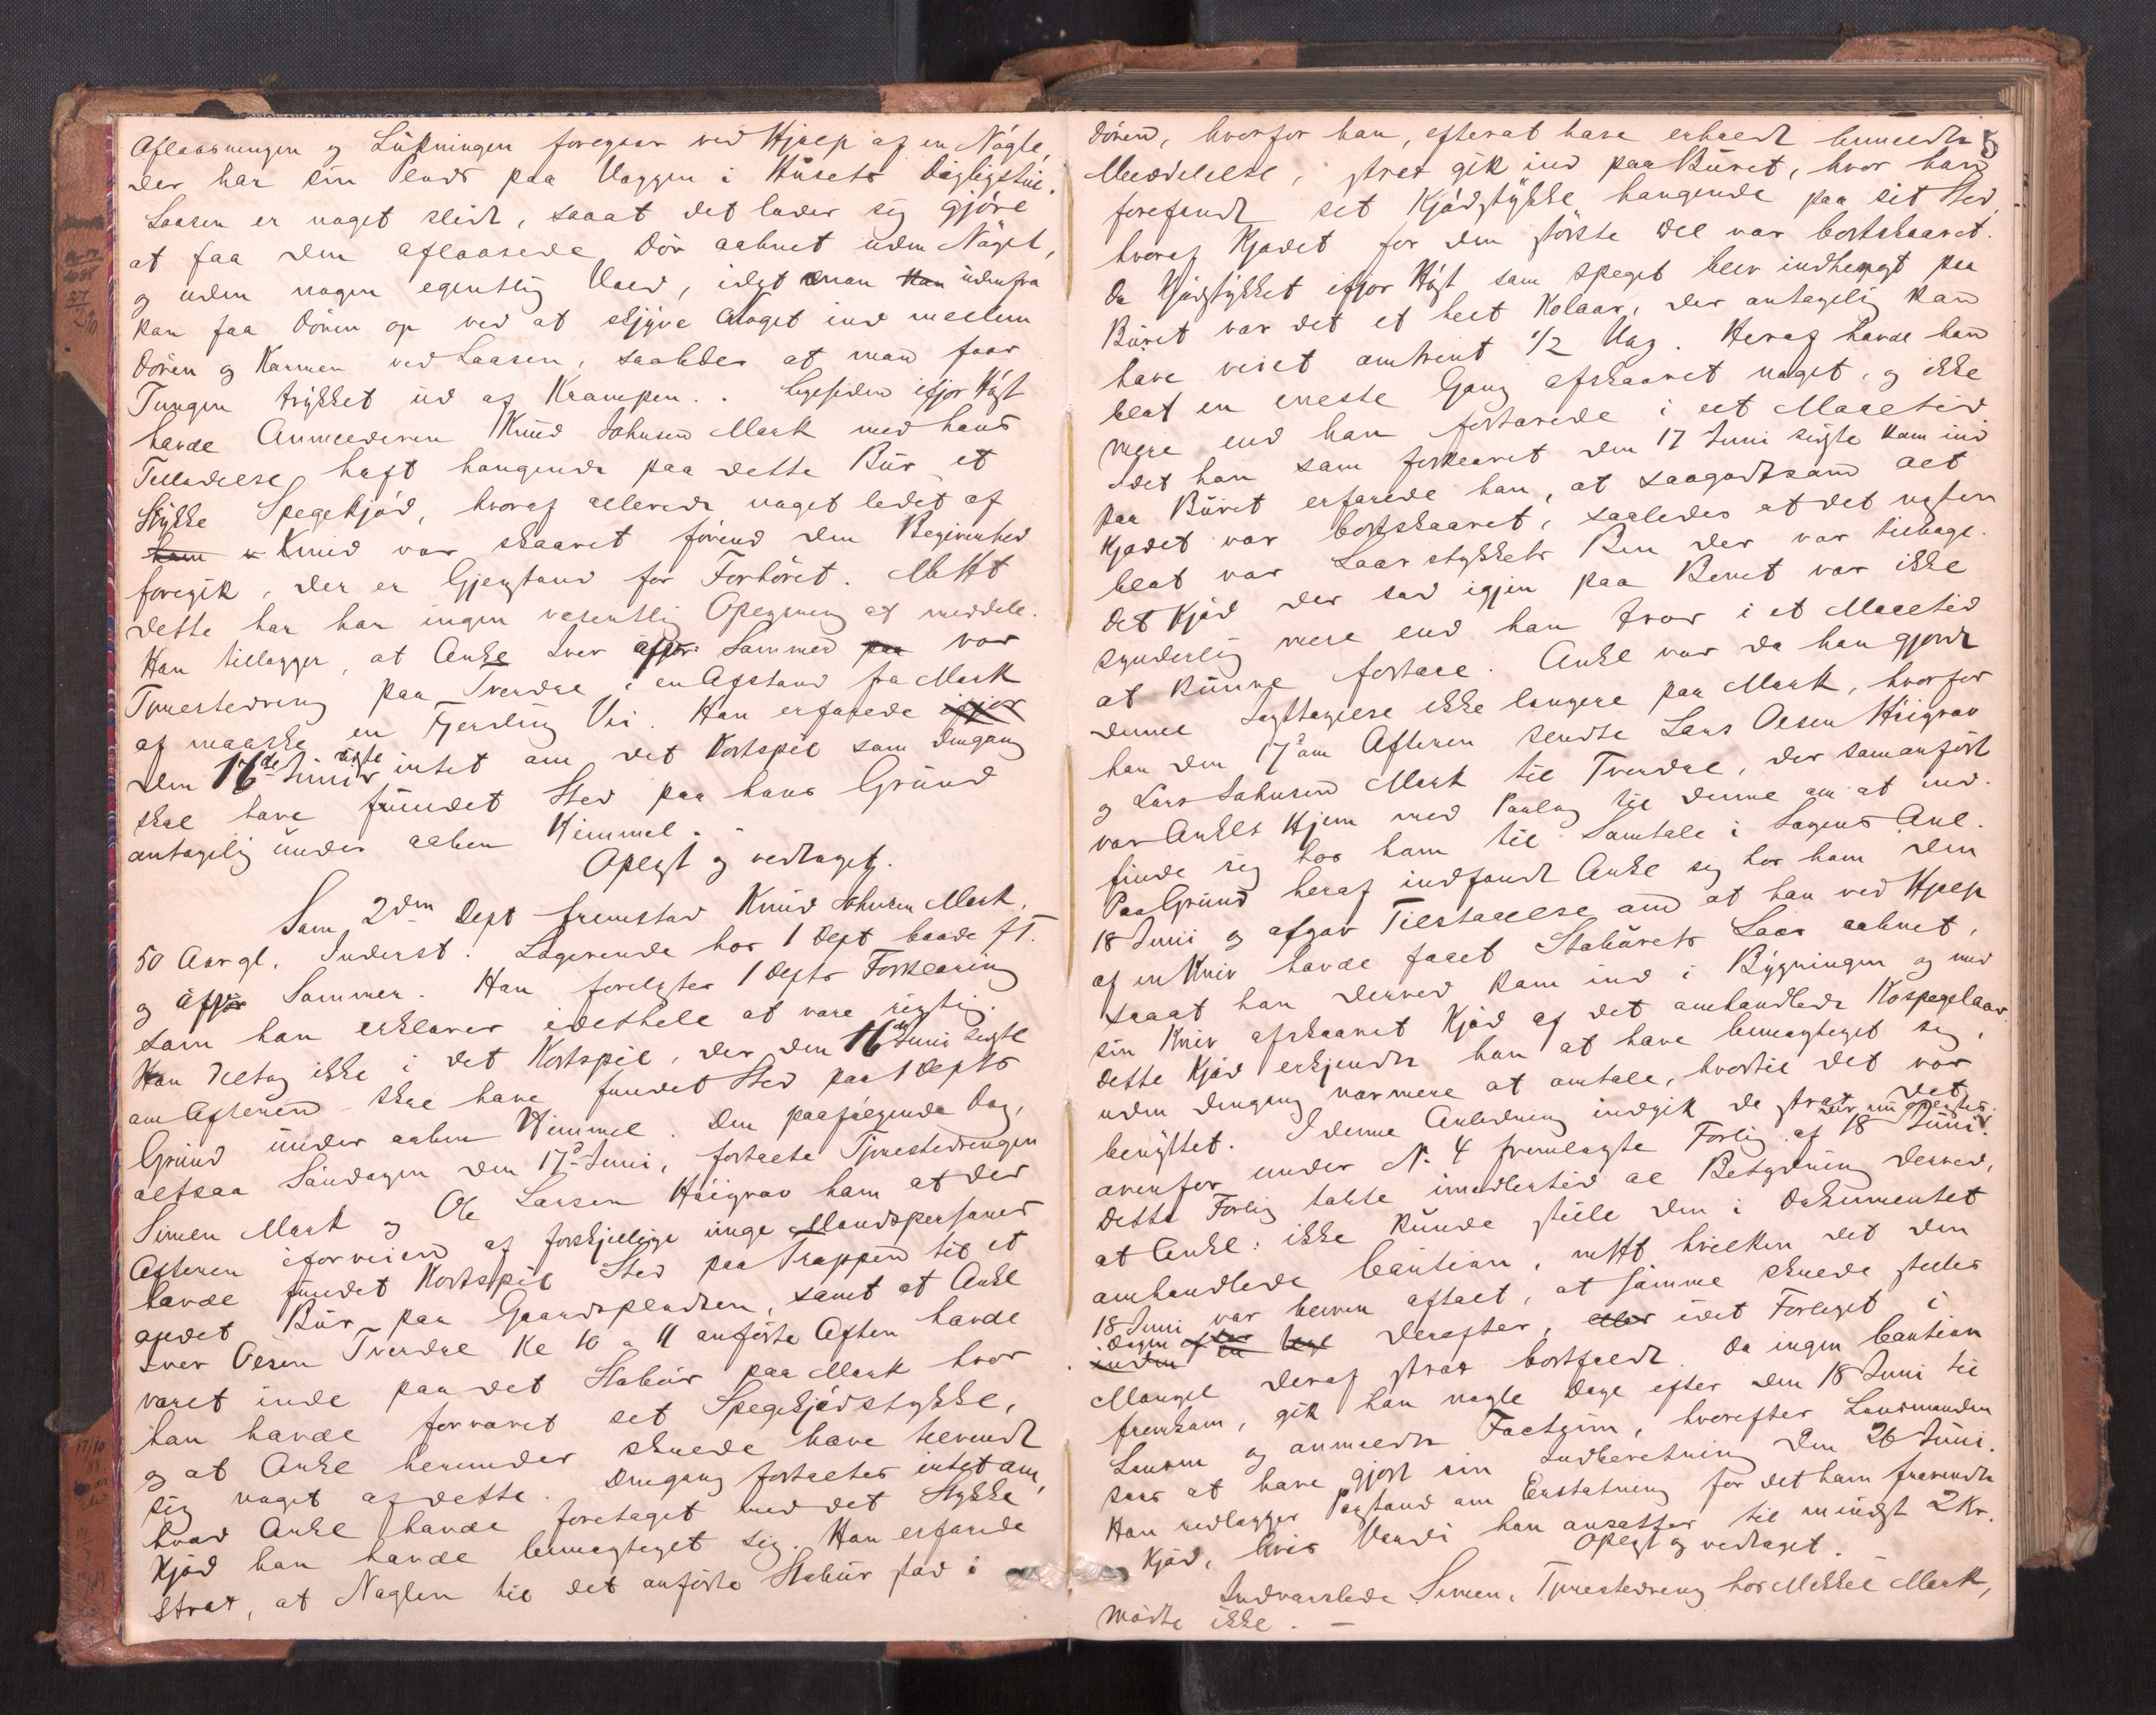 Aflaasningen og Lükningen foregaar ved Hjælp af en Nøgle,
der har sin Plads paa Væggen i Hüsets Dagligstüe.
Laasen er noget slidt, saaat det lader sig gjøre
at faa den aflaasede Dør aabnet uden Nøgel,
og uden nogen egentlig Vold, idet man kan üdenfra
kan faa Døren op ved at skyve Noget ind mellem
Døren og Karmen ved Laasen, saaledes at man faar
Tungen trykket üd af Krampen. Ligesiden ifjor Høst
havde Anmelderen Knud Johnsen Mørk med hans
Tilladelse haft hængende paa dette Bür et
Stykke Spegekjød, hvoraf allerede noget ledet af
ham Knud var skaaret førend den Begivenhed
foregik, der er Gjenstand for Forhøret. Mht
dette har han ingen væsentlig Oplysning at meddele.
Han tillægger, at Ankl Iver Sommer paa var
Tjenestedreng paa Tvendal i en Afstand fra Mørk
af maaske en Fjerding Vei. Han erfarede ifjor
den 16de Juni sidste intet om det Kortspil som dengang
skal have fundet Sted paa hans Gründ
antagelig ünder aaben Himmel.
Oplæst og vedtaget.
Som 2den Dept fremstod Knüd Johnsen Mørk,
50 Aar gl. Inderst. Logerende hos 1 Dept baade ft.
og Sommer. Han forelæstes 1 Depts Forklaring
som han erklærer idethele at være rigtig.
Han deltog ikke i det Kortspil, der den 16de Juni sidste
om Aftenen skal have fundet Sted paa 1 Depts
Gründ ünder aaben Himmel. Den paafølgende Dag,
altsaa Søndagen den 17de Juni, fortalte Tjenestedrengen
Simen Mørk og Ole Larsen Høigrav ham at der
Aftenen iforveien af forskjellige ünge Mandspersoner
havde fundet Kortspil Sted paa Trappen til et
andet Bür paa Gaardspladsen, samt at Ankl
Iver Olsen Tvendal Kl 10 a 11 anførte Aften havde
været inde paa det Stabür paa Mørk hvor
han havde forvaret sit Spegekjødstykke,
og at Ankl herunder skulde have tilvendt
sig noget af dette. Dengang fortaltes intet om,
hvad Ankl havde foretaget med det Stykke
Kjød han havde bemægtiget sig. Han erfarede
strax, at Nøglen til det anførte Stabür stod i
5
Døren, hvorfor han, efterat have erholdt bemeldte
Meddelelse, strax gik ind paa Büret, hvor han
forefandt sit Kjødstykke hængende paa sit Sted,
hvoraf Kjødet for den største Del var bortskaaret.
Da Kjødstykket ifjor Høst som speget blev indhængt paa
Büret var det et helt Kolaar, der antagelig kan
have veiet omtrent 1/2 Vog. Heraf havde han
blot en eneste Gang afskaaret noget, og ikke
mere end han fortærede i eet Maaltid
Idet han som forklaret den 17 Juni sidste kom ind
paa Büret erfarede han, at saagodtsom alt
Kjødet var bortskaaret, saaledes at det næsten
blot var Laarstykkets Ben der var tilbage.
Det Kjød der sad igjen paa Benet var ikke
synderlig mere end han tror i et Maaltid
at künne fortære. Ankl var da han gjorde
denne Iagttagelse ikke længere paa Mørk, hvorfor
han den 17de om Aftenen sendte Lars Olsen Høigrav
og Lars Johnsen Mørk til Tvendal, der som anført
var Ankls Hjem med Paalæg til denne om at ind-
finde sig hos ham til Samtale i Sagens Anl.
Paa Gründ heraf indfandt Ankl sig hos ham den
18 Juni og afgav Tilstaaelse om at han ved Hjælp
af en Kniv havde faaet Stabürets Laas aabnet,
saaat han derved kom ind i Bygningen og med
sin Kniv afskaaret Kjød af det omhandlede Kospegelaar.
Dette Kjød erkjendte han at have bemægtiget sig,
uden dengang nærmere at omtale, hvortil det var
benyttet. I denne Anledning indgik de strax det
ovenfor ünder N. 4 fremlagte Forlig af 18 Juni.
Dette Forlig tabte imidlertid al Betydning derved,
at Ankl: ikke kunde stille den i Dokumentet
omhandlede Caution, mht hvilken det den
18 Juni var bleven aftalt, at samme skulde stilles
Dagen derefter, idet Forliget i
Mangel deraf strax bortfaldt. Da ingen Caution
fremkom, gik han nogle Dage efter den 18 Juni til
Lensm og anmeldte Factum, hvorefter Lensmanden
sees at have gjort sin Indberetning den 26 Juni.
Han nedlægger Paastand om Erstatning for det ham fravendte
Kjød, hvis Værdi han ansætter til mindst 2 Kr.
Oplæst og vedtaget.
Indvarslede Simen, Tjenestedreng hos Mikkel Mørk,
mødte ikke. —